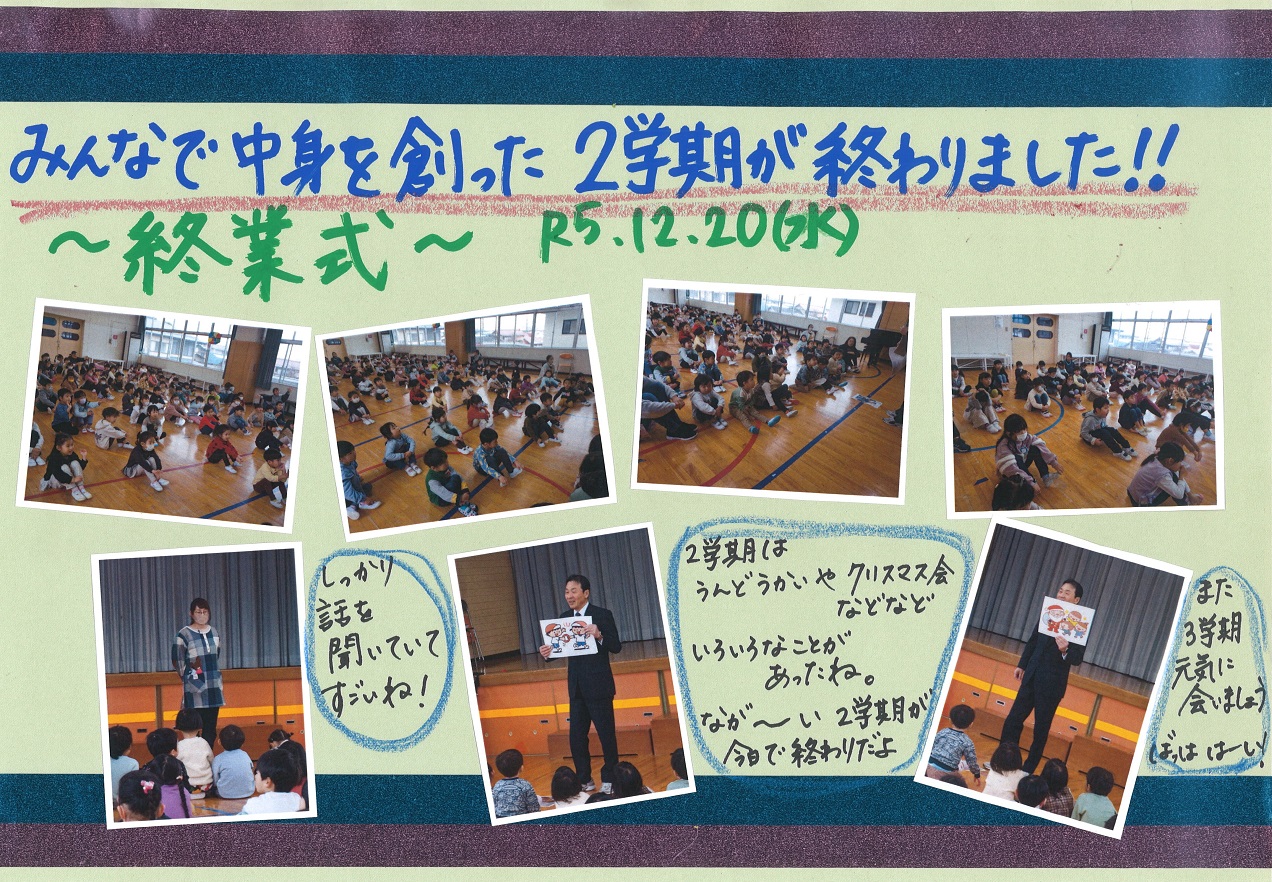 みんなで中身を創った2学期が終わりました!!
～終業式～ R5.12.20(水)
しっかり
話を
聞いていて
すごいね!
2学期は
うんどうかいや クリスマス会
などなど
いろいろなことが
あったね。
なが～い 2学期が
今日で終わりだよ
また
3学期
元気に
会いましょう
ばっはは～い!